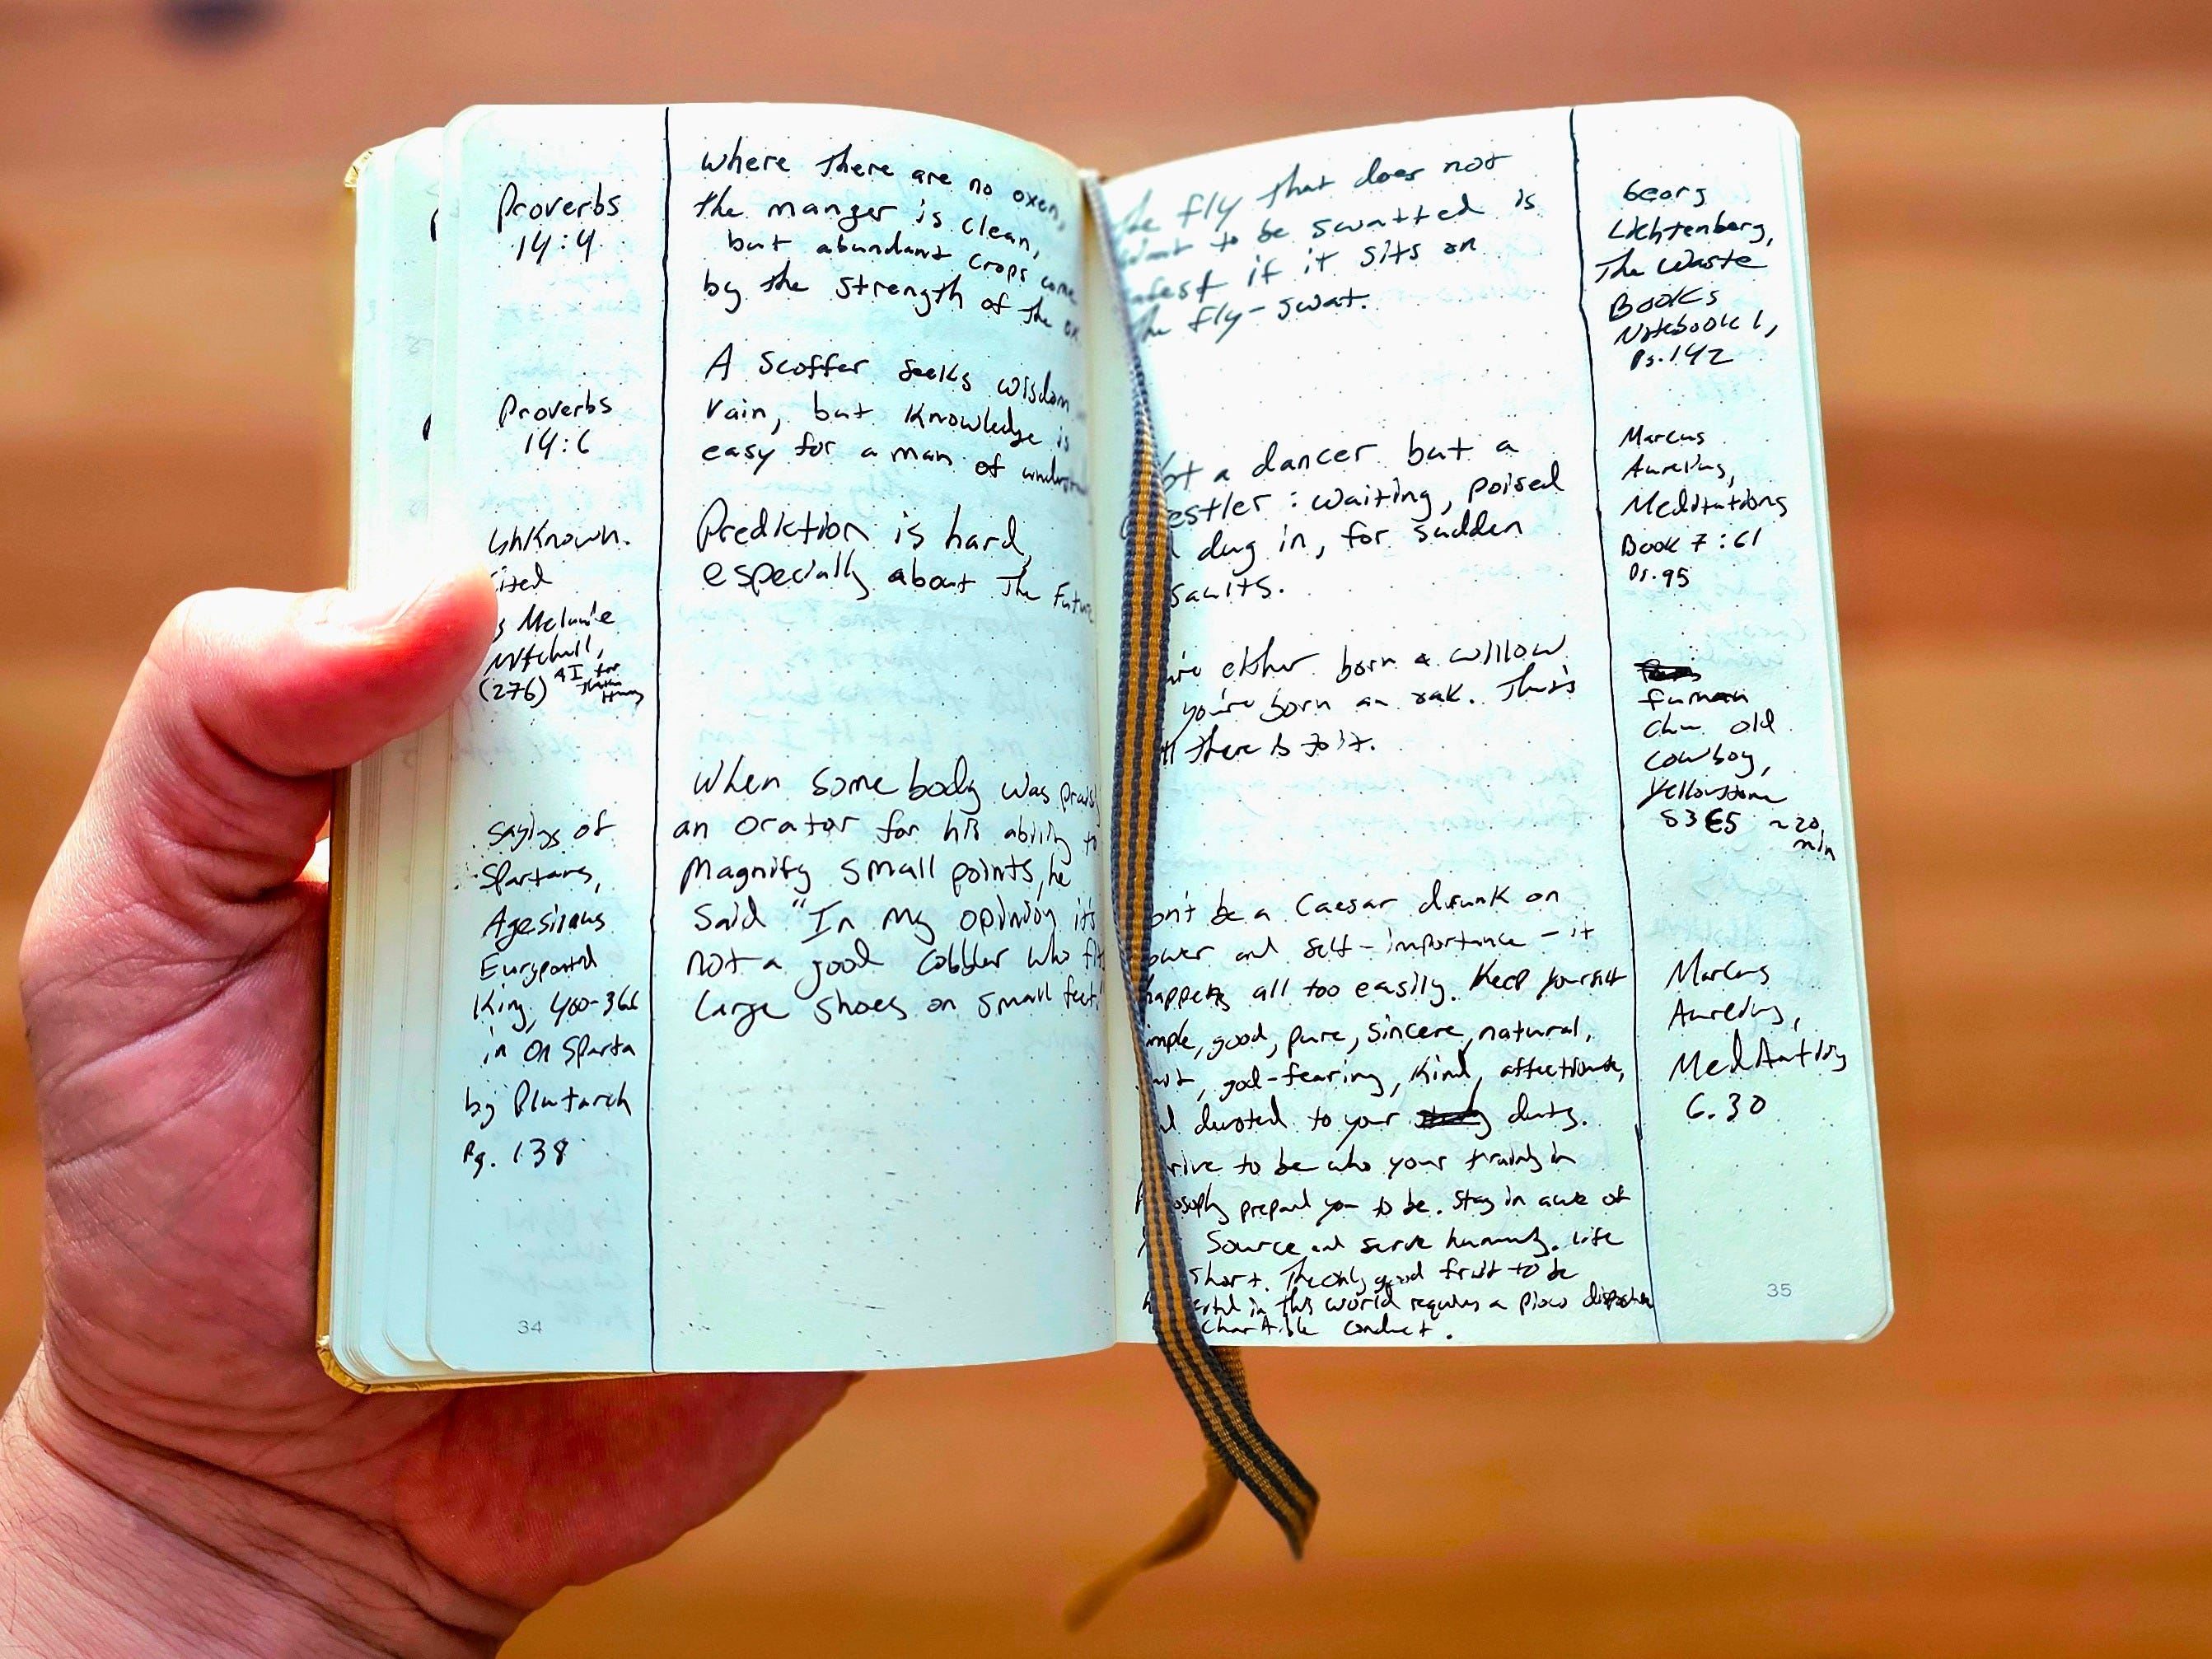 Proverbs
14:4
where there are no oxen,
the manger is clean,
but abundant crops come
by the strength of the ox
Proverbs
14:6
A scoffer seeks wisdom
vain, but knowledge is
easy for a man of
Unknown.
Melanie
Mitchell,
(276) AI for
Prediction is hard,
especially about the Future
sayings of
Spartans,
Agesilaus
King, 400-360
in On Sparta
by Plutarch
Pg. 138
when some body was
an orator for his ability to
magnify small points, he
said "In my opinion it's
not a good cobbler who
large shoes on small feet."
34
fly that does not
to be swatted is
if it sits on
the fly-swat.
Georg
Lichtenberg,
The Waste
Books
Notebook 1,
Pg. 142
a dancer but a
: waiting, poised
dug in, for sudden
Marcus
Aurelius,
Meditations
Book 7:61
Pg. 95
either born a willow
you're born an oak. That's
there is to it.
old
cowboy,
Yellowstone
S3 E5 ~20
min
be a Caesar drunk on
and self-importance - it
happens all too easily. Keep yourself
good, pure, sincere, natural,
god-fearing, kind, affectionate,
devoted to your duty.
to be who your training in
prepared you to be. Stay in awe of
Source and serve humanity. Life
short. The only good fruit to be
in this world requires a pious disposition
charitable conduct.
Marcus
Aurelius,
Meditations
6.30
35